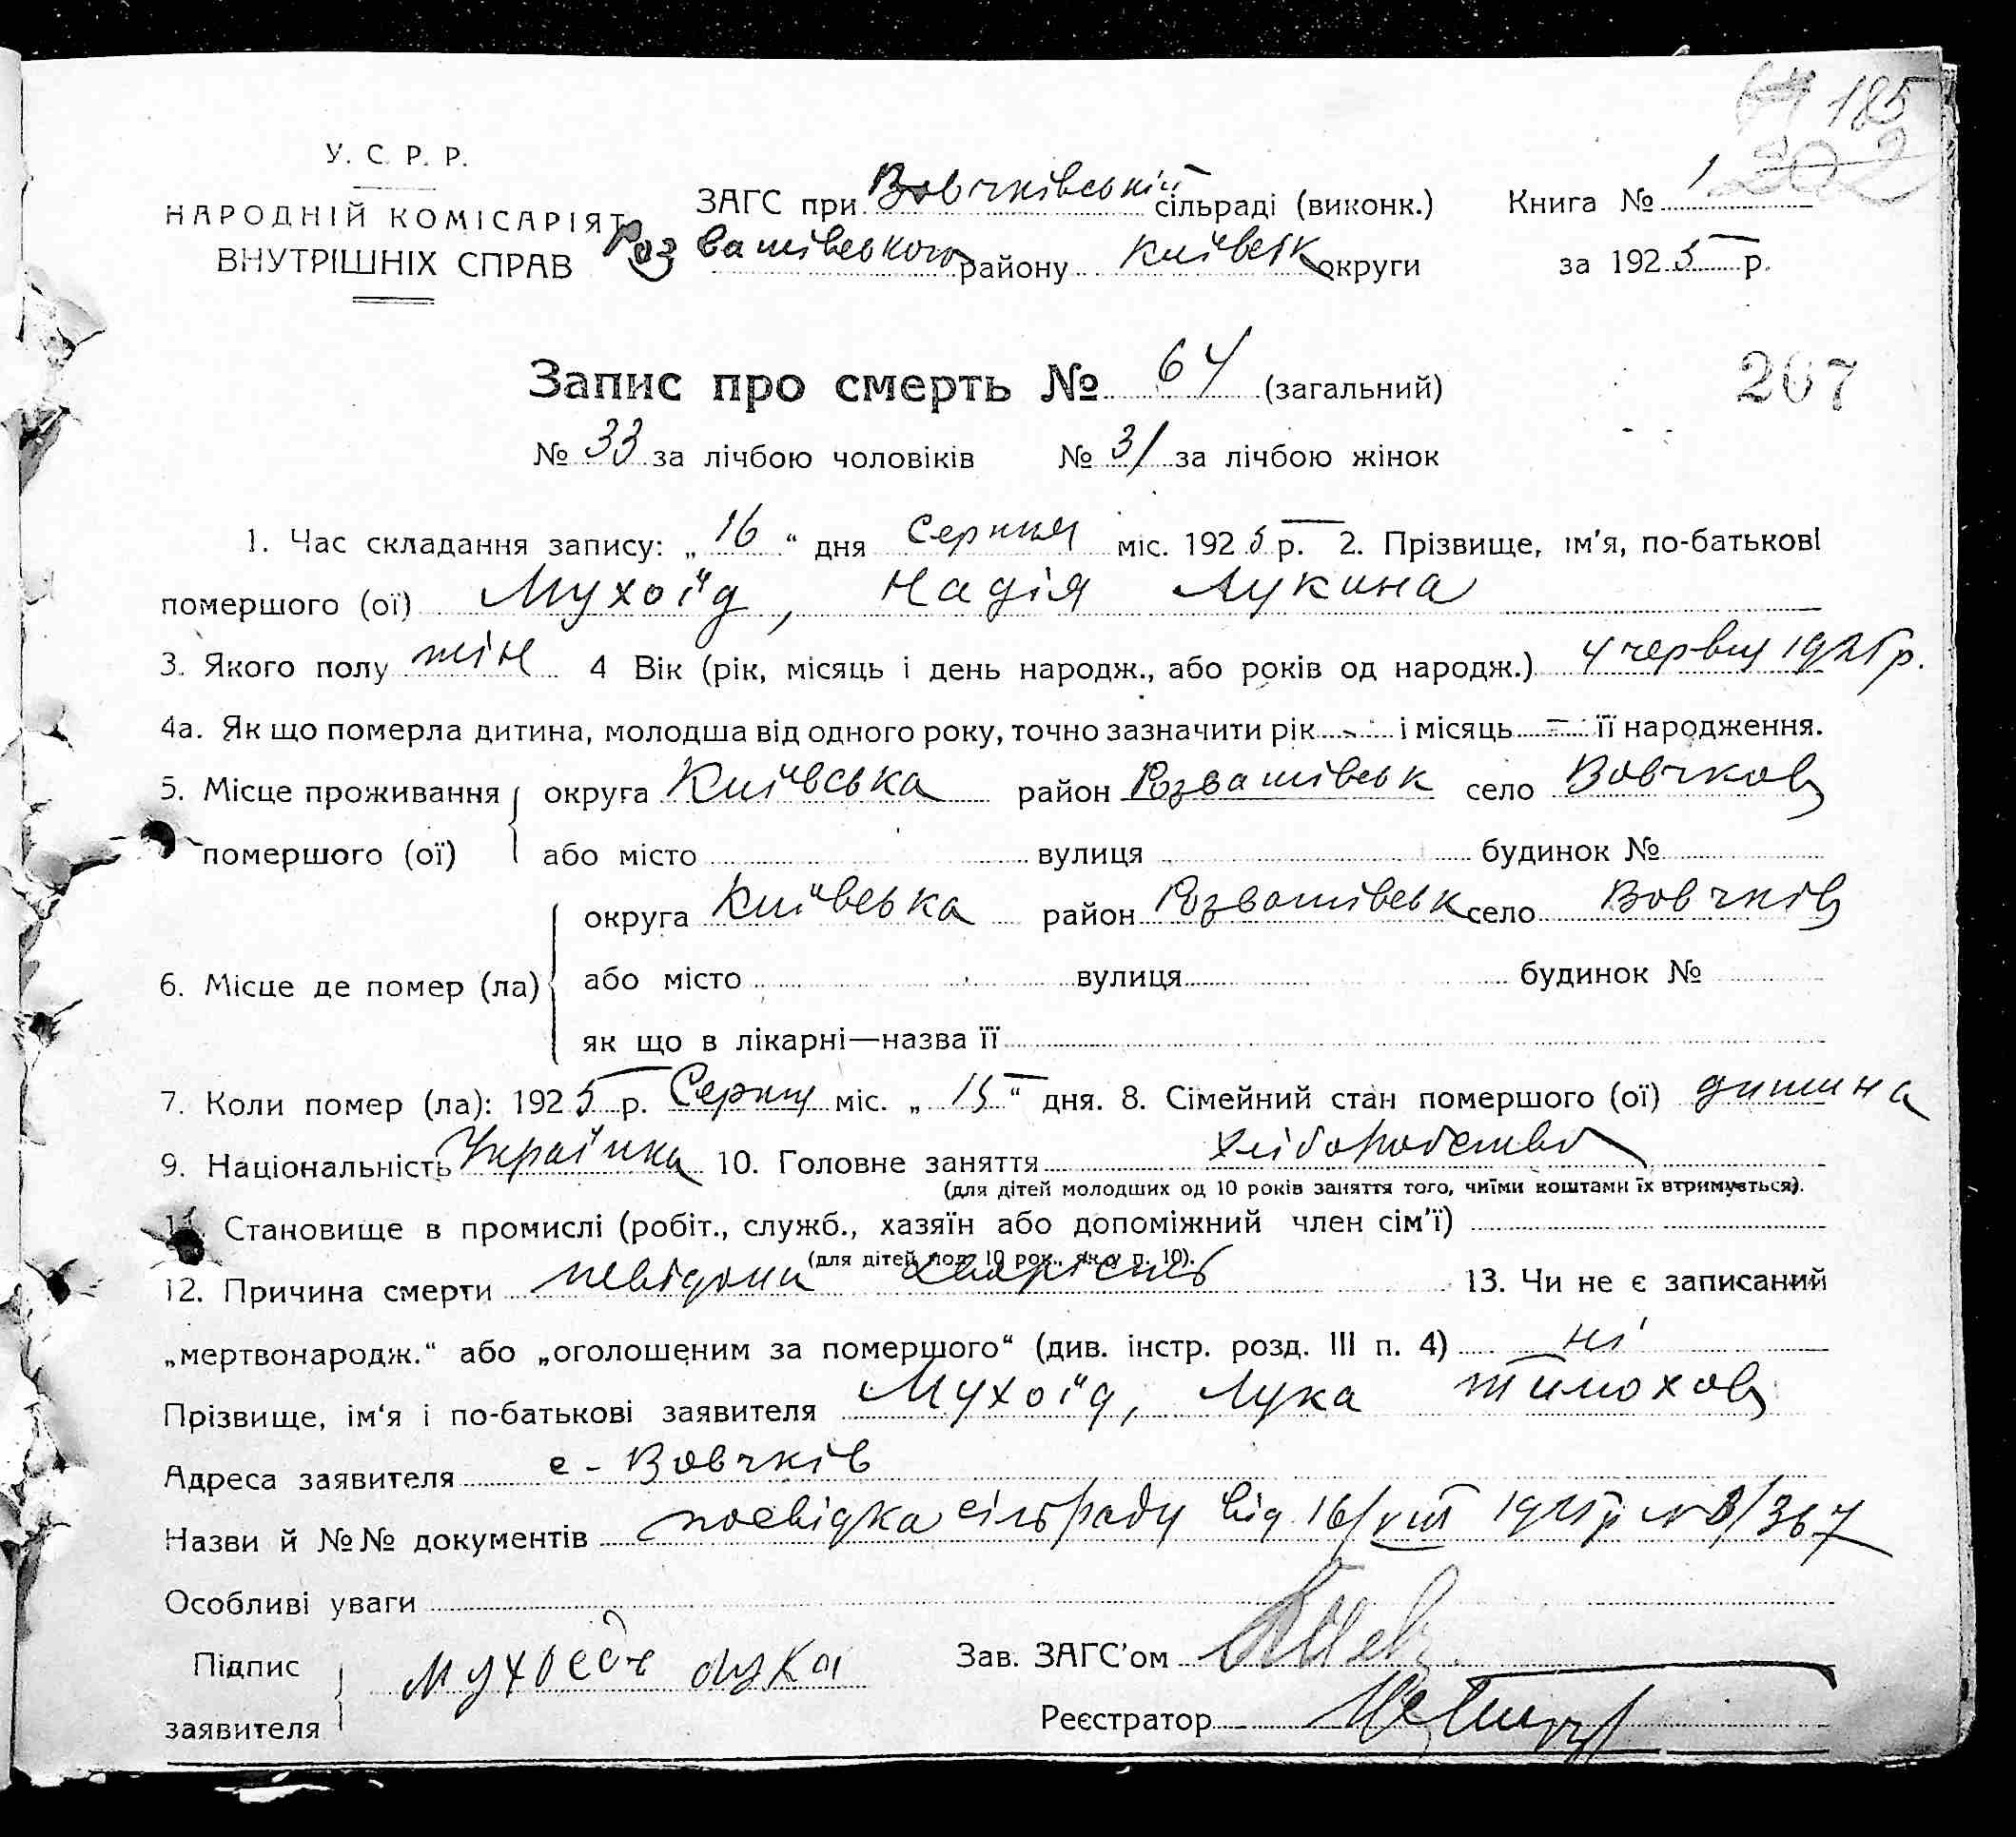 185
202
У. С. Р. Р.
НАРОДНІЙ КОМІСАРІЯТ
ВНУТРІШНІХ СПРАВ
ЗАГС при Вовчківській сільраді (виконк.)
Розважівського району Київськ округи
Книга № 1
за 1925 р.
Запис про смерть № 64 (загальний)
207
№ 33 за лічбою чоловіків № 31 за лічбою жінок
1. Час складання запису: „16“ дня Серпня міс. 1925 р. 2. Прізвище, ім'я, по-батькові
помершого (ої) Мухоїд, Надія Лукина
3. Якого полу жін 4 Вік (рік, місяць і день народж., або років од народж.) 4 червця 1925 р.
4а. Як що померла дитина, молодша від одного року, точно зазначити рік - і місяць = її народження.
5. Місце проживання округа Київська район Розважівськ село Вовчков
помершого (ої) або місто вулиця будинок №
округа Київська район Розважівськ село Вовчків
6. Місце де помер (ла) або місто вулиця будинок №
як що в лікарні—назва її
7. Коли помер (ла): 1925 р. Серпця міс. „15“ дня. 8. Сімейний стан помершого (ої) дитина
9. Національність Українка 10. Головне заняття хліборобство
(для дітей молодших од 10 років заняття того, чиїми коштами їх втримується).
11. Становище в промислі (робіт., служб., хазяїн або допоміжний член сім'ї)
(для дітей мол. 10 рок., як у п. 10).
12. Причина смерти невідома хворість 13. Чи не є записаний
„мертвонародж.“ або „оголошеним за помершого“ (див. інстр. розд. III п. 4) ні
Прізвище, ім'я і по-батькові заявителя Мухоїд, Лука Тимохов
Адреса заявителя с- Вовчків
Назви й №№ документів посвідка сільради від 16/VIII 1925 р № 8/367
Особливі уваги
Підпис заявителя Мухоедъ лука
Зав. ЗАГС'ом
Реєстратор